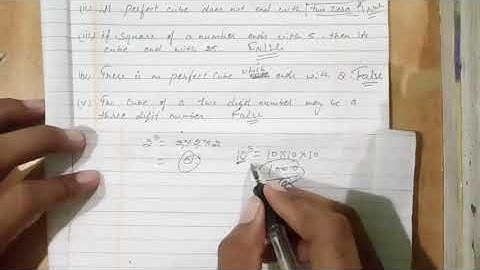 (ii) A perfect cube does not end with two zero
(iii) If square of a number ends with 5, then its
cube end with 25 False
(iv) There is no perfect cube which ends with 8. False
(v) The cube of a two digit number may be a
three digit number False
2³ = 2×2×2 10³ = 10×10×10
= 8 1000